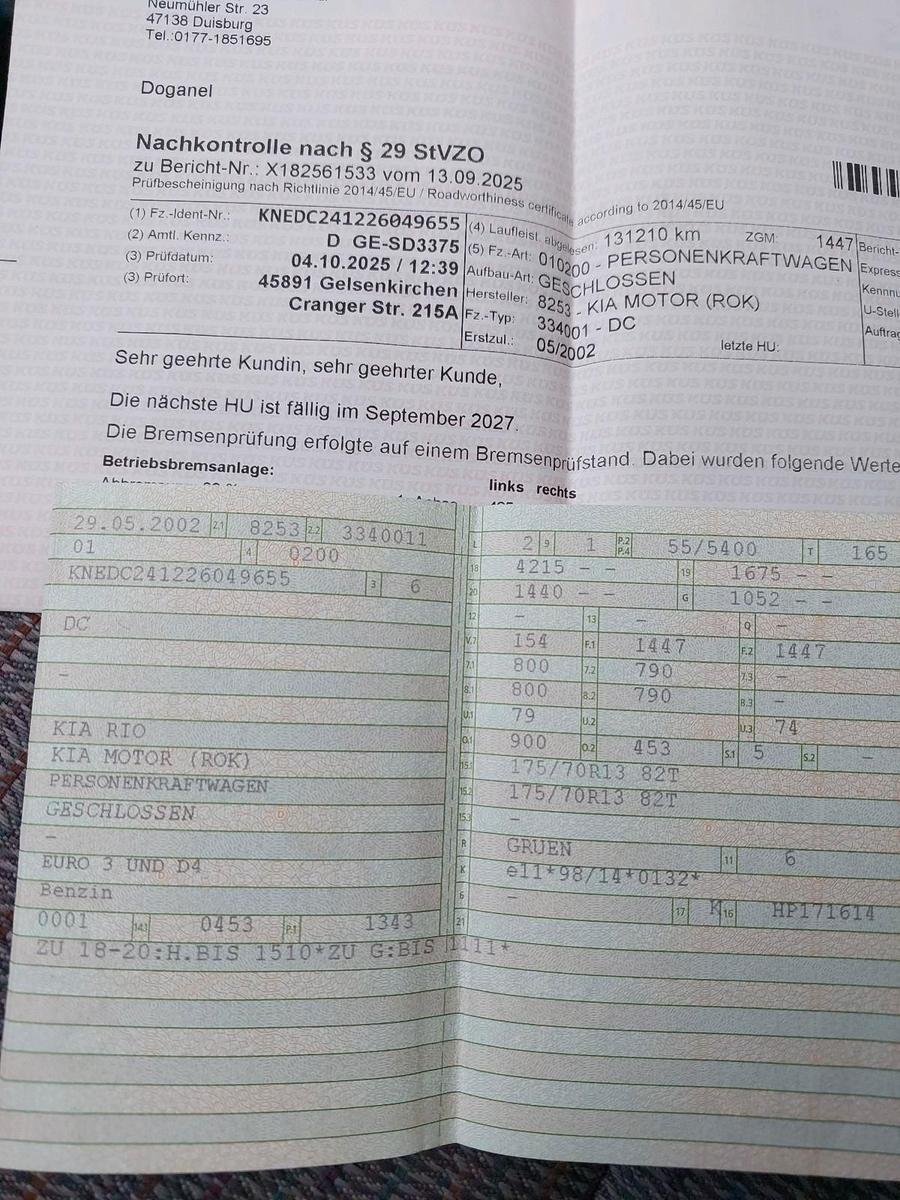 Neumühler Str. 23
47138 Duisburg
Tel.:0177-1851695
Doganel
Nachkontrolle nach § 29 StVZO
zu Bericht-Nr.: X182561533 vom 13.09.2025
Prüfbescheinigung nach Richtlinie 2014/45/EU / Roadworthiness certificate according to 2014/45/EU
(1) Fz.-Ident-Nr.: KNEDC241226049655
(2) Amtl. Kennz.: D GE-SD3375
(3) Prüfdatum: 04.10.2025 / 12:39
(3) Prüfort: 45891 Gelsenkirchen
Cranger Str. 215A
(4) Laufleist. abgelesen: 131210 km ZGM: 1447
(5) Fz.-Art: 010200 - PERSONENKRAFTWAGEN
Aufbau-Art: GESCHLOSSEN
Hersteller: 8253 - KIA MOTOR (ROK)
Fz.-Typ: 334001 - DC
Erstzul.: 05/2002 letzte HU:
Bericht-
Express
Kennnu
U-Stell
Auftrag
Sehr geehrte Kundin, sehr geehrter Kunde,
Die nächste HU ist fällig im September 2027.
Die Bremsenprüfung erfolgte auf einem Bremsenprüfstand. Dabei wurden folgende Werte
Betriebsbremsanlage: links rechts
29.05.2002 2.1 8253 2.2 3340011
01 4 0200
KNEDC241226049655 3 6
DC
–
KIA RIO
KIA MOTOR (ROK)
PERSONENKRAFTWAGEN
GESCHLOSSEN
–
EURO 3 UND D4
Benzin
0001 14.1 0453 P.1 1343
L 2 9 1 P.2 P.4 55/5400 T 165
18 4215 – – 19 1675 – –
20 1440 – – G 1052 – –
12 – 13 – Q –
V.7 154 F.1 1447 F.2 1447
7.1 800 7.2 790 7.3 –
8.1 800 8.2 790 8.3 –
U.1 79 U.2 U.3 74
O.1 900 O.2 453 S.1 5 S.2 –
15.1 175/70R13 82T
15.2 175/70R13 82T
15.3 –
R GRUEN 11 6
K e11*98/14*0132*
6 – 17 K 16 HP171614
21
ZU 18-20:H.BIS 1510*ZU G:BIS 1111*